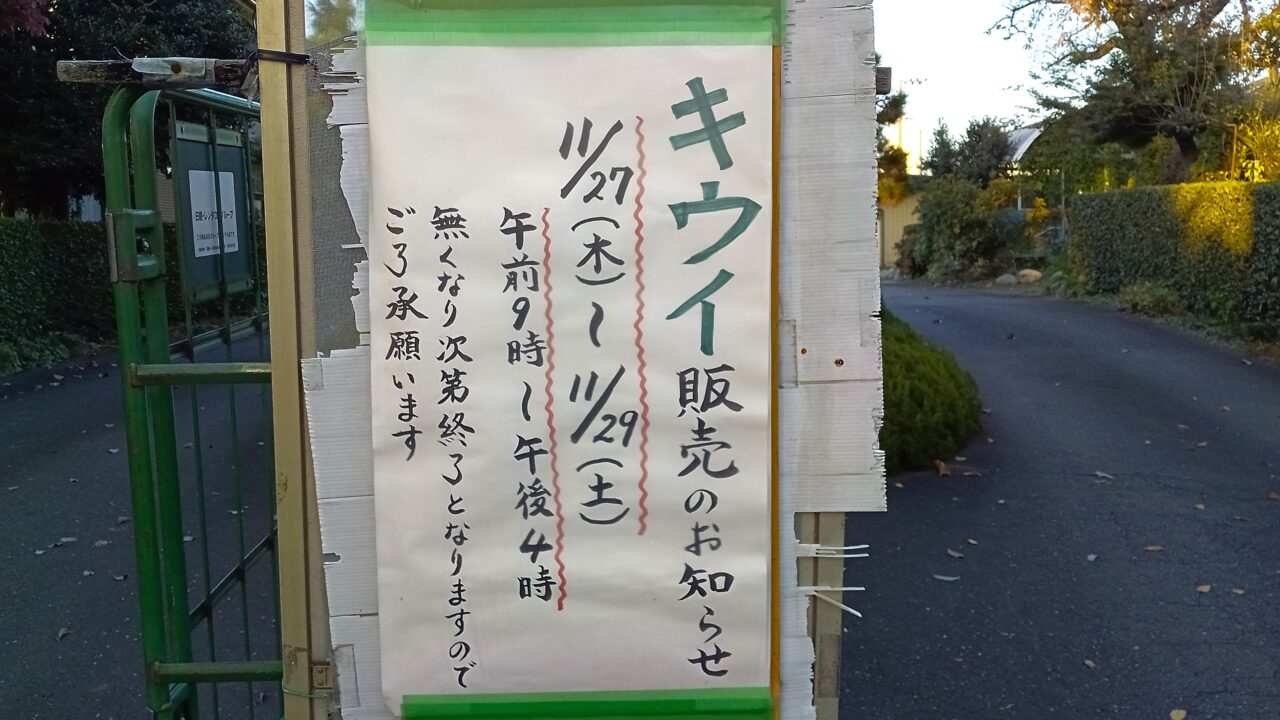 キウイ販売のお知らせ
11/27(木)～11/29(土)
午前9時～午後4時
無くなり次第終了となりますので
ご了承願います